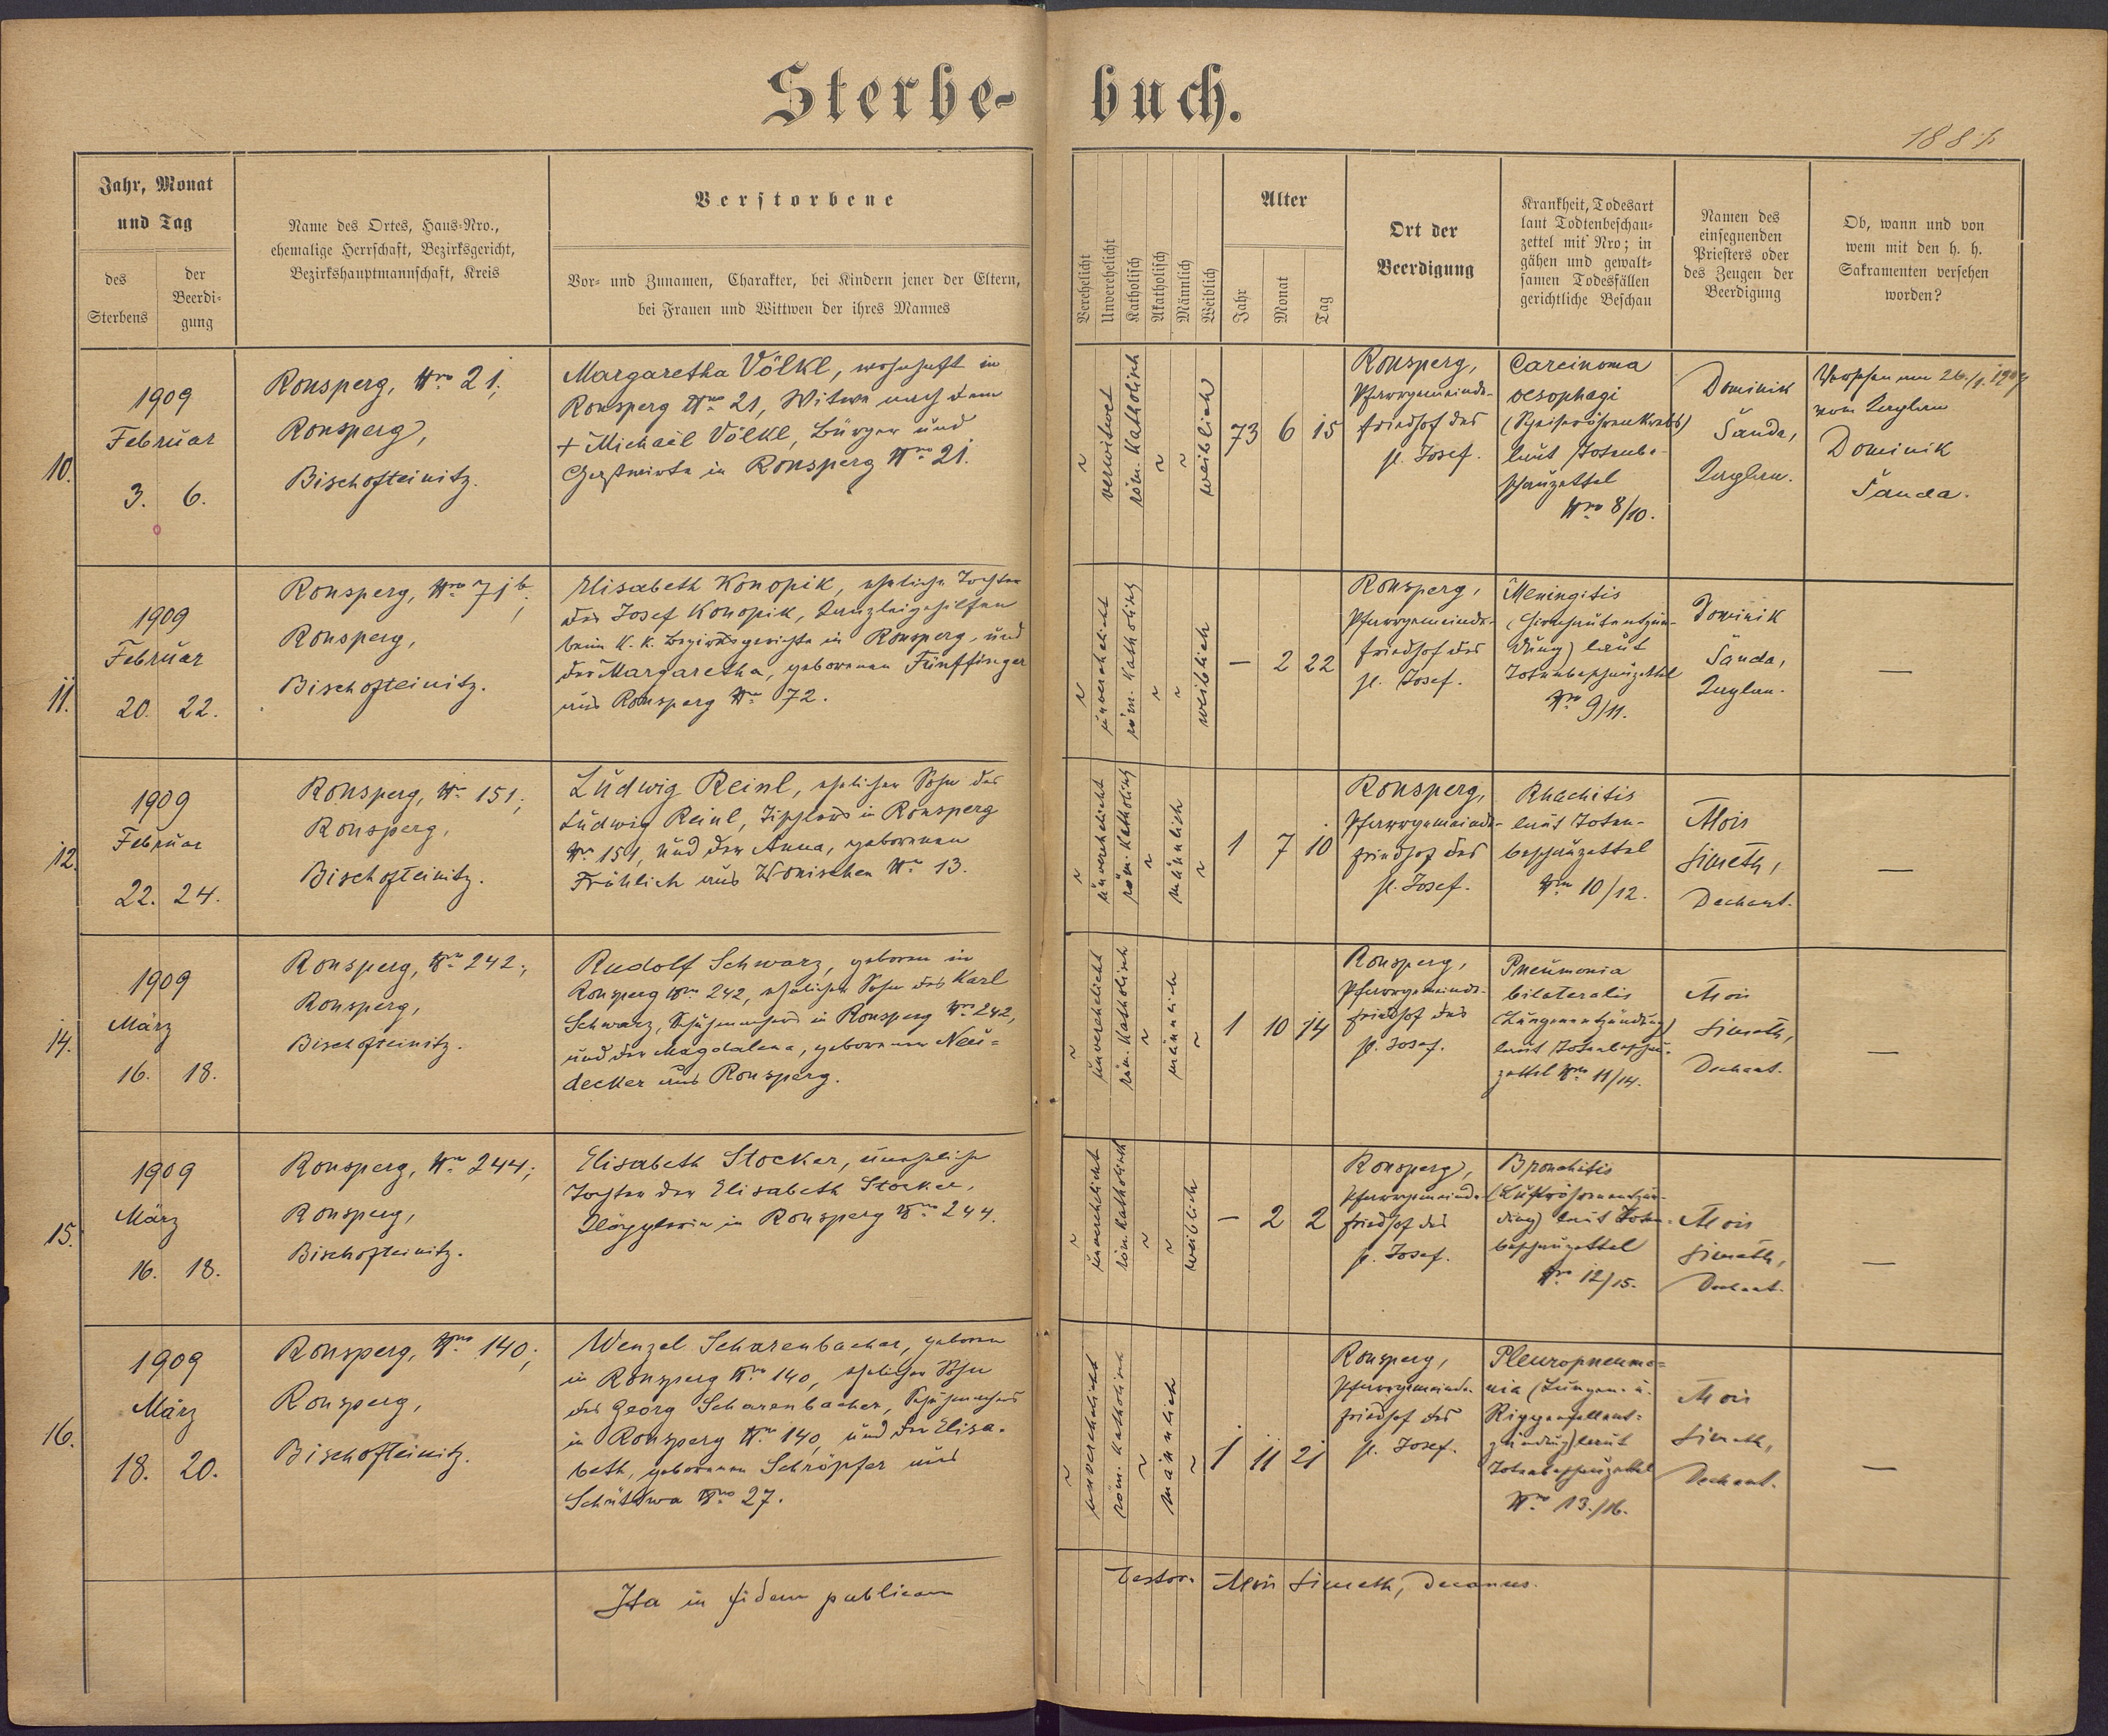 Sterbe-buch.
188
Jahr, Monat
und Tag
des
Sterbens
der
Beerdi-
gung
Name des Ortes, Haus-Nro.,
ehemalige Herrschaft, Bezirksgericht,
Bezirkshauptmannschaft, Kreis
Verstorbene
Vor- und Zunamen, Charakter, bei Kindern jener der Eltern,
bei Frauen und Wittwen der ihres Mannes
Verehelicht
Unverehelicht
Katholisch
Akatholisch
Männlich
Weiblich
Alter
Jahr
Monat
Tag
Ort der
Beerdigung
Krankheit, Todesart
laut Todtenbeschau-
zettel mit Nro; in
gähen und gewalt-
samen Todesfällen
gerichtliche Beschau
Namen des
einsegnenden
Priesters oder
des Zeugen der
Beerdigung
Ob, wann und von
wem mit den h. h.
Sakramenten versehen
worden?
10.
1909
Februar
3. 6.
Ronsperg, Nro 21;
Ronsperg,
Bischofteinitz.
Margaretha Völkl, wohnhaft in
Ronsperg Nro 21, Witwe nach dem
+ Michael Völkl, Bürger und
Gastwirte in Ronsperg Nro 21.
~
verwitwet
röm. katholisch
~
~
weiblich
73 6 15
Ronsperg,
Pfarrgemeinde-
friedhof des
hl. Josef.
Carcinoma
oesophagi
(Speiseröhrenkrebs)
laut Totenbe-
schauzettel
Nro 8/10.
Dominik
Šanda,
Kaplan.
Versehen am 26./1. 1909
vom Kaplan
Dominik
Šanda.
11.
1909
Februar
20. 22.
Ronsperg, Nro 71b;
Ronsperg,
Bischofteinitz.
Elisabeth Konopik, eheliche Tochter
des Josef Konopik, Kanzleigehilfen
beim k. k. Bezirksgerichte in Ronsperg, und
der Margaretha, geborenen Fünffinger
aus Ronsperg Nro 72.
~
unverehelicht
röm. katholisch
~
~
weiblich
— 2 22
Ronsperg,
Pfarrgemeinde-
friedhof des
hl. Josef.
Meningitis
(Hirnhautentzün-
dung) laut
Totenbeschauzettel
Nro 9/11.
Dominik
Šanda,
Kaplan.
—
12.
1909
Februar
22. 24.
Ronsperg, Nro 151;
Ronsperg,
Bischofteinitz.
Ludwig Reinl, ehelicher Sohn des
Ludwig Reinl, Tischlers in Ronsperg
Nro 151, und der Anna, geborenen
Fröhlich aus Wonischen Nro 13.
~
unverehelicht
röm. katholisch
~
männlich
~
1 7 10
Ronsperg,
Pfarrgemeinde-
friedhof des
hl. Josef.
Rhachitis
laut Toten-
beschauzettel
Nro 10/12.
Alois
Simeth,
Dechant.
—
14.
1909
März
16. 18.
Ronsperg, Nro 242;
Ronsperg,
Bischofteinitz.
Rudolf Schwarz, geboren in
Ronsperg Nro 242, ehelicher Sohn des Karl
Schwarz, Schuhmachers in Ronsperg Nro 242,
und der Magdalena, geborenen Neu=
decker aus Ronsperg.
~
unverehelicht
röm. katholisch
~
männlich
~
1 10 14
Ronsperg,
Pfarrgemeinde-
friedhof des
hl. Josef.
Pneumonia
bilateralis
(Lungenentzündung)
laut Totenbeschau-
zettel Nro 11/14.
Alois
Simeth,
Dechant.
—
15.
1909
März
16. 18.
Ronsperg, Nro 244;
Ronsperg,
Bischofteinitz.
Elisabeth Stocker, uneheliche
Tochter der Elisabeth Stocker,
Klöpplerin in Ronsperg Nro 244.
~
unverehelicht
röm. katholisch
~
~
weiblich
— 2 2
Ronsperg,
Pfarrgemeinde-
friedhof des
hl. Josef.
Bronchitis
(Luftröhrenentzün-
dung) laut Toten-
beschauzettel
Nro 12/15.
Alois
Simeth,
Dechant.
—
16.
1909
März
18. 20.
Ronsperg, Nro 140;
Ronsperg,
Bischofteinitz.
Wenzel Scharenbacher, geboren
in Ronsperg Nro 140, ehelicher Sohn
des Georg Scharenbacher, Schuhmachers
in Ronsperg Nro 140, und der Elisa-
beth, geborenen Schröpfer aus
Schüttwa Nro 27.
~
unverehelicht
röm. katholisch
~
männlich
~
1 11 21
Ronsperg,
Pfarrgemeinde-
friedhof des
hl. Josef.
Pleuropneumo=
nia (Lungen- u.
Rippenfellent=
zündung) laut
Totenbeschauzettel
Nro 13./16.
Alois
Simeth,
Dechant.
—
Ita in fidem publicam testor. Alois Simeth, decanus.